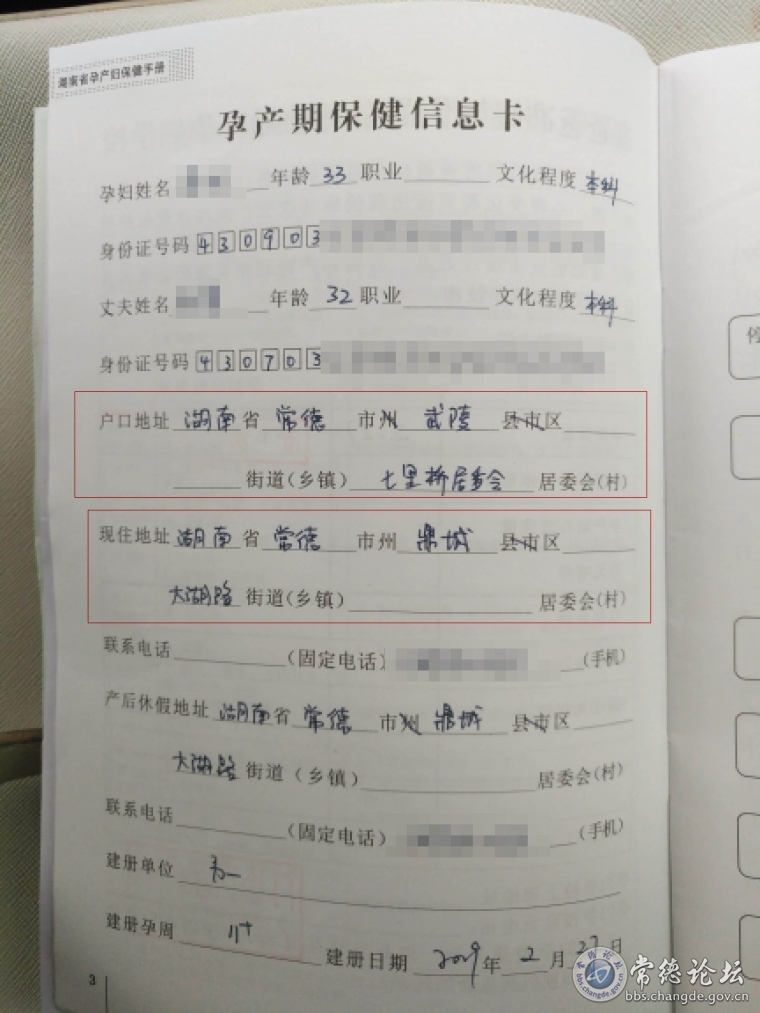 湖南省孕产妇保健手册
孕产期保健信息卡
孕妇姓名 年龄 33 职业 文化程度 本科
身份证号码 430903
丈夫姓名 年龄 32 职业 文化程度 本科
身份证号码 430703
户口地址 湖南 省 常德 市州 武陵 县市区
街道(乡镇) 七里桥居委会 居委会(村)
现住地址 湖南 省 常德 市州 鼎城 县市区
大湖路 街道(乡镇) 居委会(村)
联系电话 (固定电话) (手机)
产后休假地址 湖南 省 常德 市州 鼎城 县市区
大湖路 街道(乡镇) 居委会(村)
联系电话 (固定电话) (手机)
建册单位
建册孕周 11+
建册日期 2019 年 2 月 27 日
3
常德论坛
bbs.changde.gov.cn